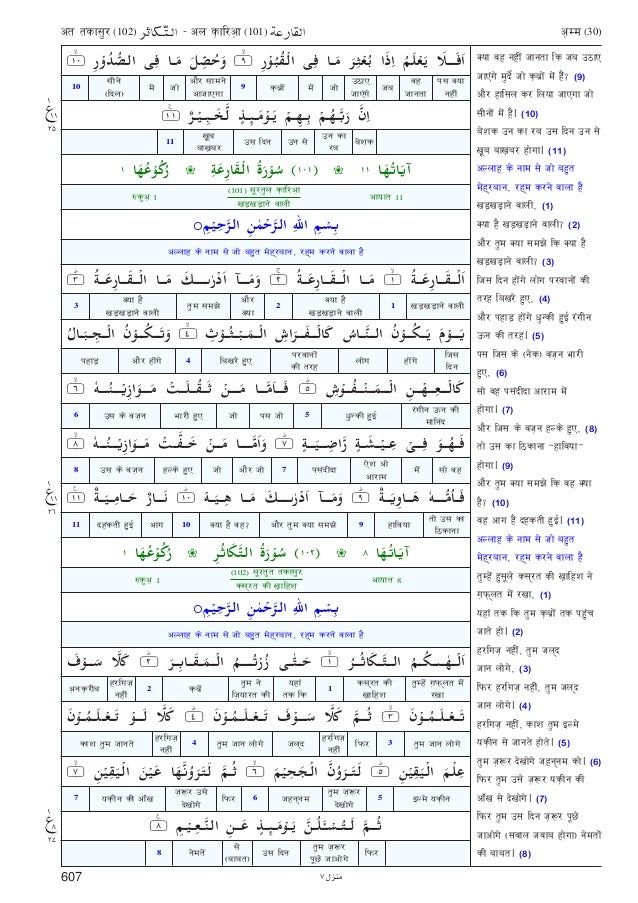 अत तकासुर (102) التّكاثر - अल क़ारिआ (101) القارعة अम्म (30)
اَفَلَا يَعْلَمُ اِذَا بُعْثِرَ مَا فِى الْقُبُوْرِ ۹ وَحُصِّلَ مَا فِى الصُّدُوْرِ ۱۰
पस क्या नहीं वह जानता जब उठाए जाएंगे जो में क़ब्रों 9 और सामने आजाएगा जो में सीने (दिल) 10
اِنَّ رَبَّهُمْ بِهِمْ يَوْمَىِٕذٍ لَّخَبِيْرٌ ۱۱
बेशक उन का रब उन से उस दिन खूब बाख़बर 11
اٰيَاتُهَا ۱۱ ❀ (۱۰۱) سُوْرَةُ الْقَارِعَةِ ❀ رُكُوْعُهَا ۱
आयात 11 (101) सूरतुल क़ारिआ खड़खड़ाने वाली रुकुअ़ 1
بِسْمِ اللهِ الرَّحْمٰنِ الرَّحِيْمِ
अल्लाह के नाम से जो बहुत मेह्‌रबान, रह्‌म करने वाला है
اَلْقَارِعَةُ ۱ مَا الْقَارِعَةُ ۲ وَمَآ اَدْرٰىكَ مَا الْقَارِعَةُ ۳
खड़खड़ाने वाली 1 क्या है खड़खड़ाने वाली 2 और क्या तुम समझे क्या है खड़खड़ाने वाली 3
يَوْمَ يَكُوْنُ النَّاسُ كَالْفَرَاشِ الْمَبْثُوْثِ ۴ وَتَكُوْنُ الْجِبَالُ
जिस दिन होंगे लोग परवानों की तरह बिखरे हुए 4 और होंगे पहाड़
كَالْعِهْنِ الْمَنْفُوْشِ ۵ فَاَمَّا مَنْ ثَقُلَتْ مَوَازِيْنُهٗ ۶
रंगीन ऊन की मानिंद धुन्की हुई 5 पस जो जो भारी हुए उस के वज़न 6
فَهُوَ فِىْ عِيْشَةٍ رَّاضِيَةٍ ۷ وَاَمَّا مَنْ خَفَّتْ مَوَازِيْنُهٗ ۸
सो वह में ऐश ओ आराम पसंदीदा 7 और जो जो हल्के हुए उस के वज़न 8
فَاُمُّهٗ هَاوِيَةٌ ۹ وَمَآ اَدْرٰىكَ مَا هِيَهْ ۱۰ نَارٌ حَامِيَةٌ ۱۱
तो उस का ठिकाना हाविया 9 और तुम क्या समझे क्या है वह? 10 आग दहकती हुई 11
اٰيَاتُهَا ۸ ❀ (۱۰۲) سُوْرَةُ التَّكَاثُرِ ❀ رُكُوْعُهَا ۱
आयात 8 (102) सूरतुत तकासुर कस्रत की ख़ाहिश रुकुअ़ 1
بِسْمِ اللهِ الرَّحْمٰنِ الرَّحِيْمِ
अल्लाह के नाम से जो बहुत मेह्‌रबान, रह्‌म करने वाला है
اَلْهٰىكُمُ التَّكَاثُرُ ۱ حَتّٰى زُرْتُمُ الْمَقَابِرَ ۲ كَلَّا سَوْفَ
तुम्हें ग़फ़्लत में रखा कस्रत की ख़ाहिश 1 यहां तक कि तुम ने ज़ियारत की क़ब्रें 2 हरगिज़ नहीं अनकरीब
تَعْلَمُوْنَ ۳ ثُمَّ كَلَّا سَوْفَ تَعْلَمُوْنَ ۴ كَلَّا لَوْ تَعْلَمُوْنَ
तुम जान लोगे 3 फिर हरगिज़ नहीं जल्द तुम जान लोगे 4 हरगिज़ नहीं काश तुम जानते
عِلْمَ الْيَقِيْنِ ۵ لَتَرَوُنَّ الْجَحِيْمَ ۶ ثُمَّ لَتَرَوُنَّهَا عَيْنَ الْيَقِيْنِ ۷
इल्मे यकीन 5 तुम ज़रूर देखोगे जहन्नम 6 फिर ज़रूर उसे देखोगे यकीन की आँख 7
ثُمَّ لَتُسْـَٔلُنَّ يَوْمَىِٕذٍ عَنِ النَّعِيْمِ ۸
फिर तुम ज़रूर पूछे जाओगे उस दिन से (बाबत) नेमतें 8
क्या वह नहीं जानता कि जब उठाए
जाएंगे मुर्दे जो क़ब्रों में हैं? (9)
और हासिल कर लिया जाएगा जो
सीनों में है। (10)
बेशक उन का रब उस दिन उन से
खूब बाख़बर होगा। (11)
अल्लाह के नाम से जो बहुत
मेह्‌रबान, रह्‌म करने वाला है
खड़खड़ाने वाली, (1)
क्या है खड़खड़ाने वाली? (2)
और तुम क्या समझे कि क्या है
खड़खड़ाने वाली? (3)
जिस दिन होंगे लोग परवानों की
तरह बिखरे हुए, (4)
और पहाड़ होंगे धुन्की हुई रंगीन
ऊन की तरह। (5)
पस जिस के (नेक) वज़न भारी
हुए, (6)
सो वह पसंदीदा आराम में
होगा। (7)
और जिस के वज़न हल्के हुए, (8)
तो उस का ठिकाना "हाविया"
होगा। (9)
और तुम क्या समझे कि वह क्या
है? (10)
वह आग है दहकती हुई। (11)
अल्लाह के नाम से जो बहुत
मेह्‌रबान, रह्‌म करने वाला है
तुम्हें हुसूले कस्रत की ख़ाहिश ने
ग़फ़्लत में रखा, (1)
यहां तक कि तुम क़ब्रों तक पहुंच
जाते हो। (2)
हरगिज़ नहीं, तुम जल्द
जान लोगे, (3)
फिर हरगिज़ नहीं, तुम जल्द
जान लोगे। (4)
हरगिज़ नहीं, काश तुम इल्मे
यकीन से जानते होते। (5)
तुम ज़रूर देखोगे जहन्नम को। (6)
फिर तुम उसे ज़रूर यकीन की
आँख से देखोगे। (7)
फिर तुम उस दिन ज़रूर पूछे
जाओगे (सवाल जवाब होगा) नेमतों
की बाबत। (8)
ع ۱ ۱۱ ۲۵
ع ۱ ۱۱ ۲۶
ع ۱ ۸ ۲۷
607 منزل ۷